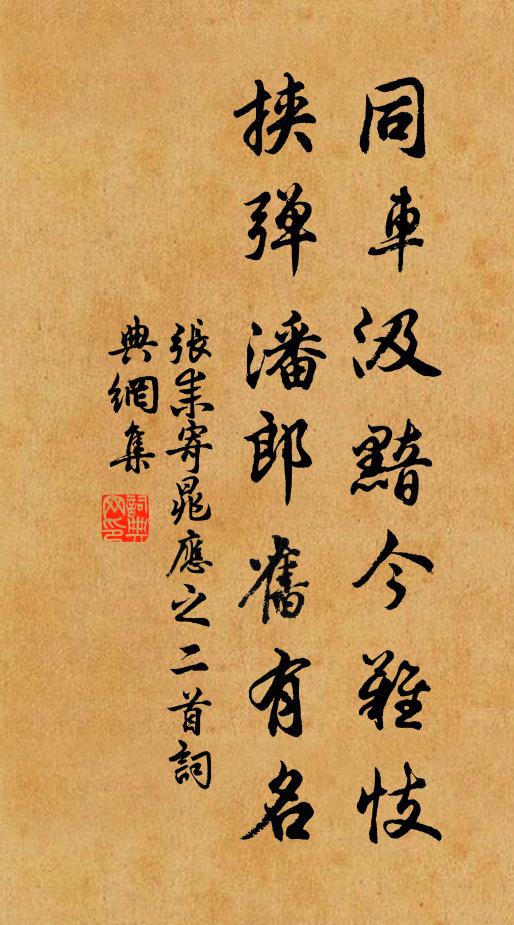 同車汲黯今難忮
挾弹潘郎舊有名
張耒寄晁應之二首詞
典網集
詞典网印